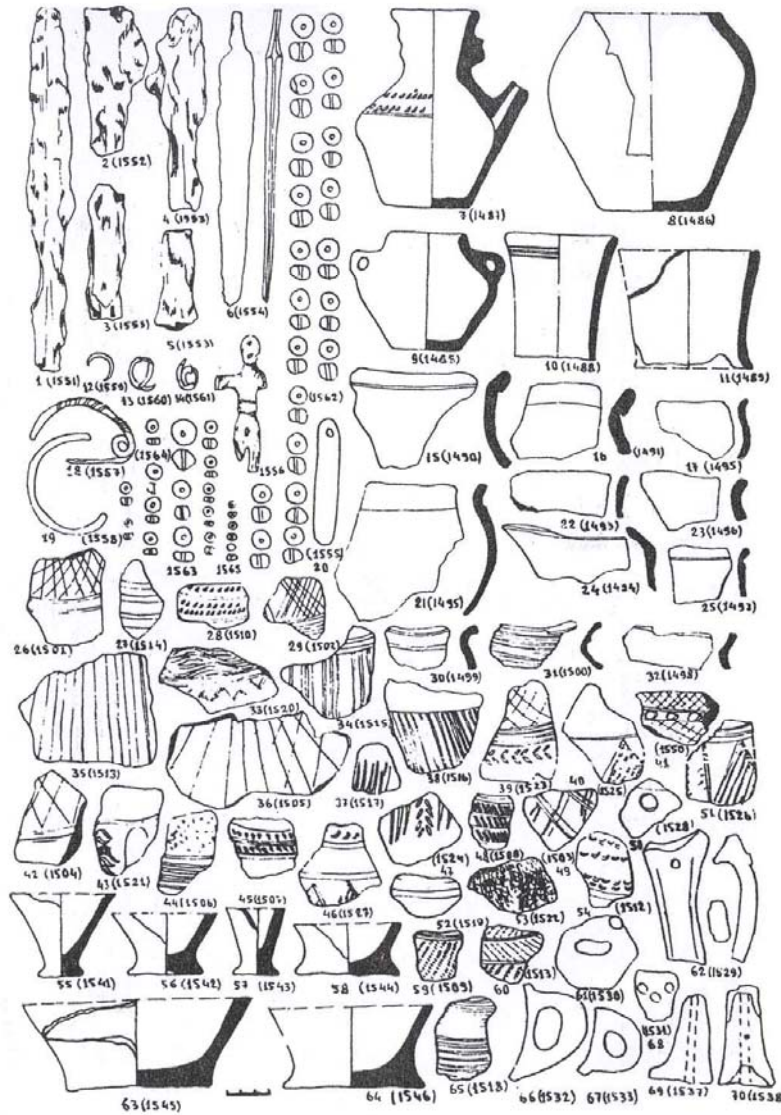 2 (1552)
4 (1953)
7 (1487)
8 (1486)
3 (1553)
5 (1553)
6 (1554)
1 (1551)
12 (1559)
13 (1560)
14 (1561)
(1562)
9 (1485)
10 (1488)
11 (1489)
1556
15 (1490)
16 (1491)
17 (1495)
18 (1557)
(1564)
19 (1558)
1563
1565
(1555)
20
21 (1495)
22 (1493)
23 (1496)
24 (1494)
25 (1492)
26 (1501)
27 (1514)
28 (1510)
29 (1502)
30 (1499)
31 (1500)
32 (1498)
33 (1520)
34 (1515)
35 (1513)
36 (1505)
37 (1517)
38 (1516)
39 (1523)
40
(1525)
(1550)
41
51 (1526)
42 (1504)
43 (1521)
44 (1506)
45 (1507)
46 (1527)
(1524)
47
48 (1508)
(1503)
49
(1528)
50
52 (1519)
53 (1522)
54
(1512)
55 (1541)
56 (1542)
57 (1543)
58 (1544)
59 (1509)
60
(1513)
61 (1530)
62 (1529)
(1531)
68
63 (1545)
64 (1546)
65 (1518)
66 (1532)
67 (1533)
69 (1537)
70 (1538